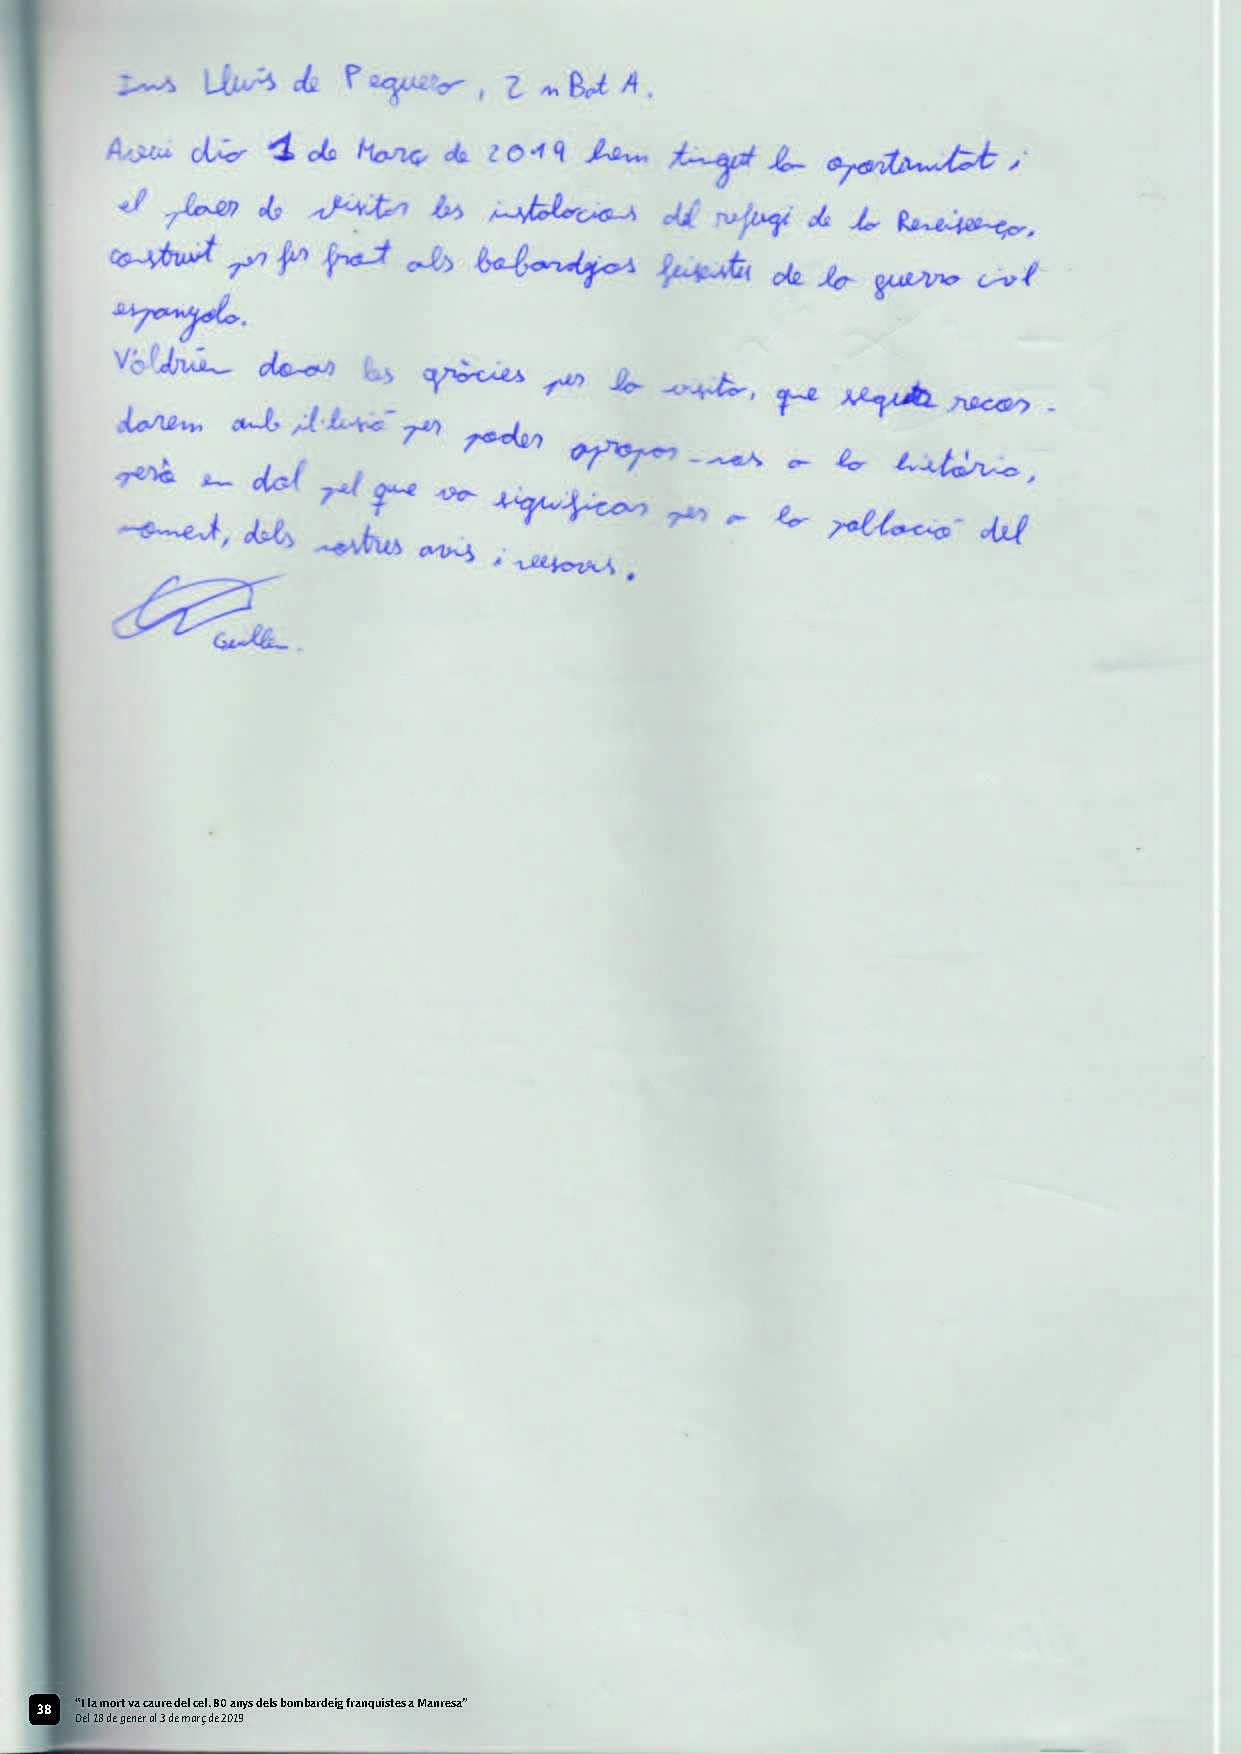 Ins Lluís de Peguera, 2n Bat A.
Avui dia 1 de Març de 2019 hem tingut la oportunitat i
el plaer de visitar les instal·lacions del refugi de la Reneixença,
construit per fer front als babardejos feixistes de la guerra civil
espanyola.
Voldríem donar les gràcies per la visita, que segur recor-
darem amb il·lusió per poder apropar-nos a la història,
però en dol pel que va significar per a la població del
moment, dels nostres avis i besavis.
Guillem.
38
“I la mort va caure del cel. 80 anys dels bombardeig franquistes a Manresa”
Del 28 de gener al 3 de març de 2019